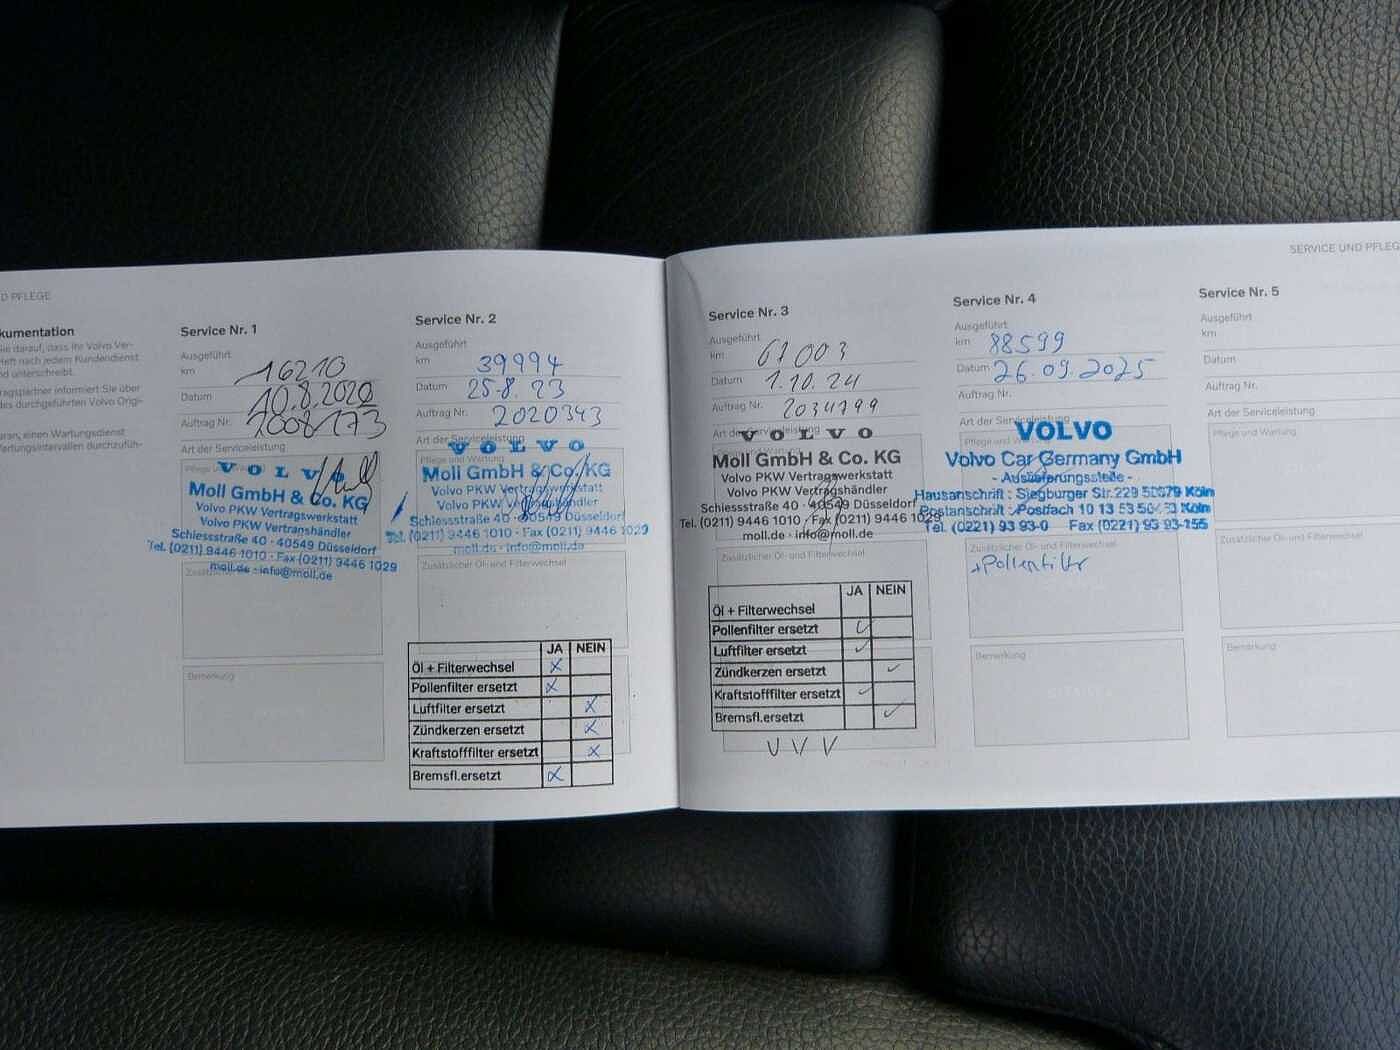 D PFLEGE
kumentation
Sie darauf, dass Ihr Volvo Ver-
Heft nach jedem Kundendienst
nd unterschreibt.
ragspartner informiert Sie über
des durchgeführten Volvo Origi-
aran, einen Wartungsdienst
Wartungsintervallen durchzufüh-
Service Nr. 1
Ausgeführt
km 16210
Datum 10.8.2020
Auftrag Nr.
Art der Serviceleistung
Pflege und
VOLVO
Moll GmbH & Co. KG
Volvo PKW Vertragswerkstatt
Volvo PKW Vertragshändler
Schiessstraße 40 · 40549 Düsseldorf
Tel. (0211) 9446 1010 · Fax (0211) 9446 1029
moll.de · info@moll.de
Bemerkung
Service Nr. 2
Ausgeführt
km 39994
Datum 25.8.23
Auftrag Nr. 2020343
Art der Serviceleistung
Pflege und Wartung
VOLVO
Moll GmbH & Co. KG
Volvo PKW Vertragswerkstatt
Volvo PKW Vertragshändler
Schiessstraße 40 · 40549 Düsseldorf
Tel. (0211) 9446 1010 · Fax (0211) 9446 1029
moll.de · info@moll.de
Zusätzlicher Öl- und Filterwechsel
JA NEIN
Öl + Filterwechsel X
Pollenfilter ersetzt X
Luftfilter ersetzt X
Zündkerzen ersetzt X
Kraftstofffilter ersetzt X
Bremsfl.ersetzt X
SERVICE UND PFLEG
Service Nr. 3
Ausgeführt
km 61003
Datum 1.10.24
Auftrag Nr. 2034799
Art der Serviceleistung
VOLVO
Moll GmbH & Co. KG
Volvo PKW Vertragswerkstatt
Volvo PKW Vertragshändler
Schiessstraße 40 · 40549 Düsseldorf
Tel. (0211) 9446 1010 · Fax (0211) 9446 1029
moll.de · info@moll.de
Zusätzlicher Öl- und Filterwechsel
JA NEIN
Öl + Filterwechsel
Pollenfilter ersetzt ✓
Luftfilter ersetzt ✓
Zündkerzen ersetzt ✓
Kraftstofffilter ersetzt ✓
Bremsfl.ersetzt ✓
✓ ✓ ✓
Service Nr. 4
Ausgeführt
km 88599
Datum 26.09.2025
Auftrag Nr.
Art der Serviceleistung
Pflege und Wartung
VOLVO
Volvo Car Germany GmbH
- Auslieferungsstelle -
Hausanschrift : Siegburger Str. 229 50679 Köln
Postanschrift : Postfach 10 13 53 Köln
Tel. (0221) 93 93-0 Fax (0221) 93 93-155
Zusätzlicher Öl- und Filterwechsel
+Pollenfilter
Bemerkung
Service Nr. 5
Ausgeführt
km
Datum
Auftrag Nr.
Art der Serviceleistung
Pflege und Wartung
Zusätzlicher Öl- und Filterwechsel
Bemerkung